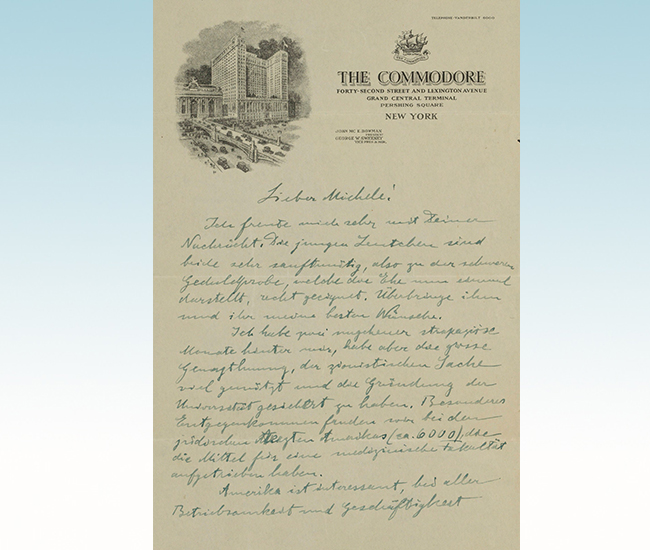 TELEPHONE VANDERBILT 6000
THE COMMODORE
FORTY-SECOND STREET AND LEXINGTON AVENUE
GRAND CENTRAL TERMINAL
PERSHING SQUARE
NEW YORK
JOHN MC E. BOWMAN
PRESIDENT
GEORGE W. SWEENEY
VICE PRES. & MGR.
Lieber Michele!
Ich freute mich sehr mit Deiner
Nachricht. Die jungen Leutchen sind
beide sehr sanftmütig, also zu der schweren
Geduldprobe, welche die Ehe nun einmal
darstellt, recht geeignet. Überbringe ihm
und ihr meine besten Wünsche.
Ich habe zwei ungeheuer strapaziöse
Monate hinter mir, habe aber die grosse
Genugthuung, der zionistischen Sache
viel genützt und die Gründung der
Universität gesichert zu haben. Besonderes
Entgegenkommen fanden wir bei den
jüdischen Ärzten Amerikas (ca. 6000), die
die Mittel für eine medizinische Fakultät
aufgetrieben haben.
Amerika ist interessant, bei aller
Betriebsamkeit und Geschäftigkeit